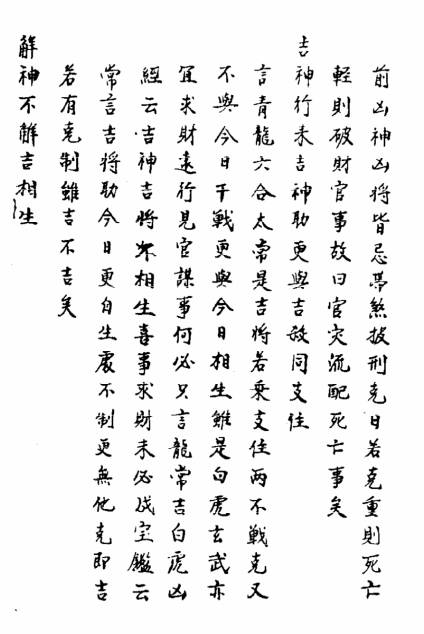 前凶神凶将皆忌帶煞披刑克日若克重則死亡
輕則破財官事故曰官灾流配死亡事矣
吉神行未吉神助更與吉敌同支住
言青龍六合太常是吉将若乗支住两不戰克又
不與今日干戰更與今日相生雖是白虎玄武亦
宜求財遠行見官謀事何必只言龍常吉白虎凶
經云吉神吉将不相生喜事求財未必成宝鑑云
常言吉将助今日更自生處不制更無他克即吉
若有克制雖吉不吉矣
解神不解吉相生